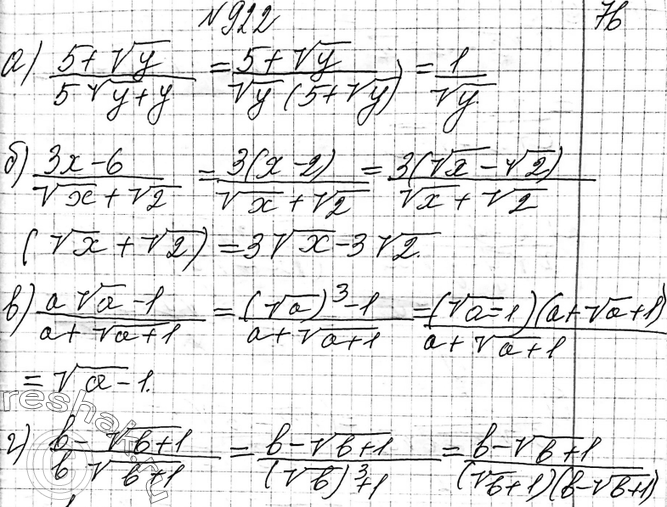 №922 7б
а) (5+√y)/(5√y+y) = (5+√y)/(√y(5+√y)) = 1/√y.
б) (3x-6)/(√x+√2) = (3(x-2))/(√x+√2) = (3(√x-√2))/(√x+√2)
(√x+√2) = 3√x-3√2.
в) (a√a-1)/(a+√a+1) = ((√a)³-1)/(a+√a+1) = ((√a-1)(a+√a+1))/(a+√a+1)
= √a-1.
г) (b-√b+1)/(b√b+1) = (b-√b+1)/((√b)³+1) = (b-√b+1)/((√b+1)(b-√b+1))
reshak.ru